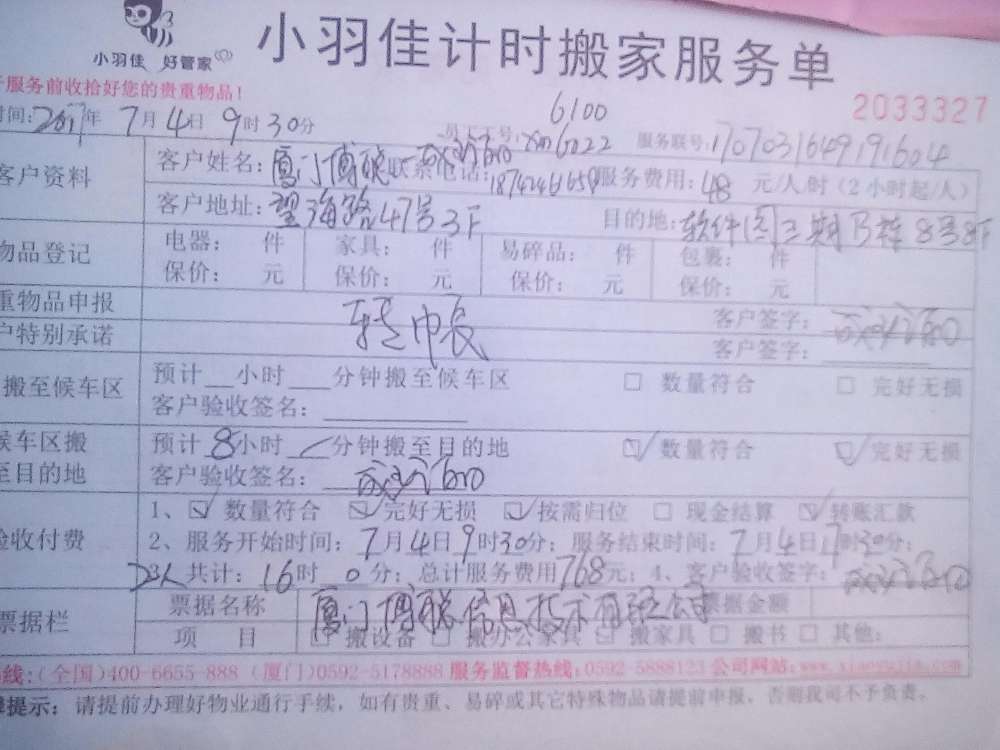 小羽佳 好管家
小羽佳计时搬家服务单
服务前收拾好您的贵重物品!
2033327
6100
时间:2017年7月4日9时30分 员工工号: 6022 服务联号:1707031649191604
客户资料
客户姓名:厦门博聪 联系电话: 服务费用:48元/人/时(2小时起/人)
客户地址:望海路47号3F 目的地:软件园三期B栋8号8F
物品登记
电器: 件 家具: 件 易碎品: 件 包裹: 件
保价: 元 保价: 元 保价: 元 保价: 元
重物品申报 客户签字:
户特别承诺 客户签字:
搬至候车区
预计__小时___分钟搬至候车区 □ 数量符合 □ 完好无损
客户验收签名:
候车区搬
至目的地
预计8小时 分钟搬至目的地 ☑ 数量符合 ☑ 完好无损
客户验收签名:
验收付费
1、☑ 数量符合 ☑ 完好无损 ☑ 按需归位 □ 现金结算 ☑ 转账汇款
2、服务开始时间:7月4日9时30分;服务结束时间:7月4日17时30分;
人共计:16时0分;总计服务费用768元;4、客户验收签字:
票据栏
票据名称 厦门博聪信息技术有限公司 票据金额
项 目 □ 搬设备 □ 搬办公家具 □ 搬家具 □ 搬书 □ 其他:
线:(全国)400-6655-888 (厦门)0592-5178888 服务监督热线:0592-5888123 公司网站:
提示:请提前办理好物业通行手续,如有贵重、易碎或其它特殊物品请提前申报,否则我司不予负责。